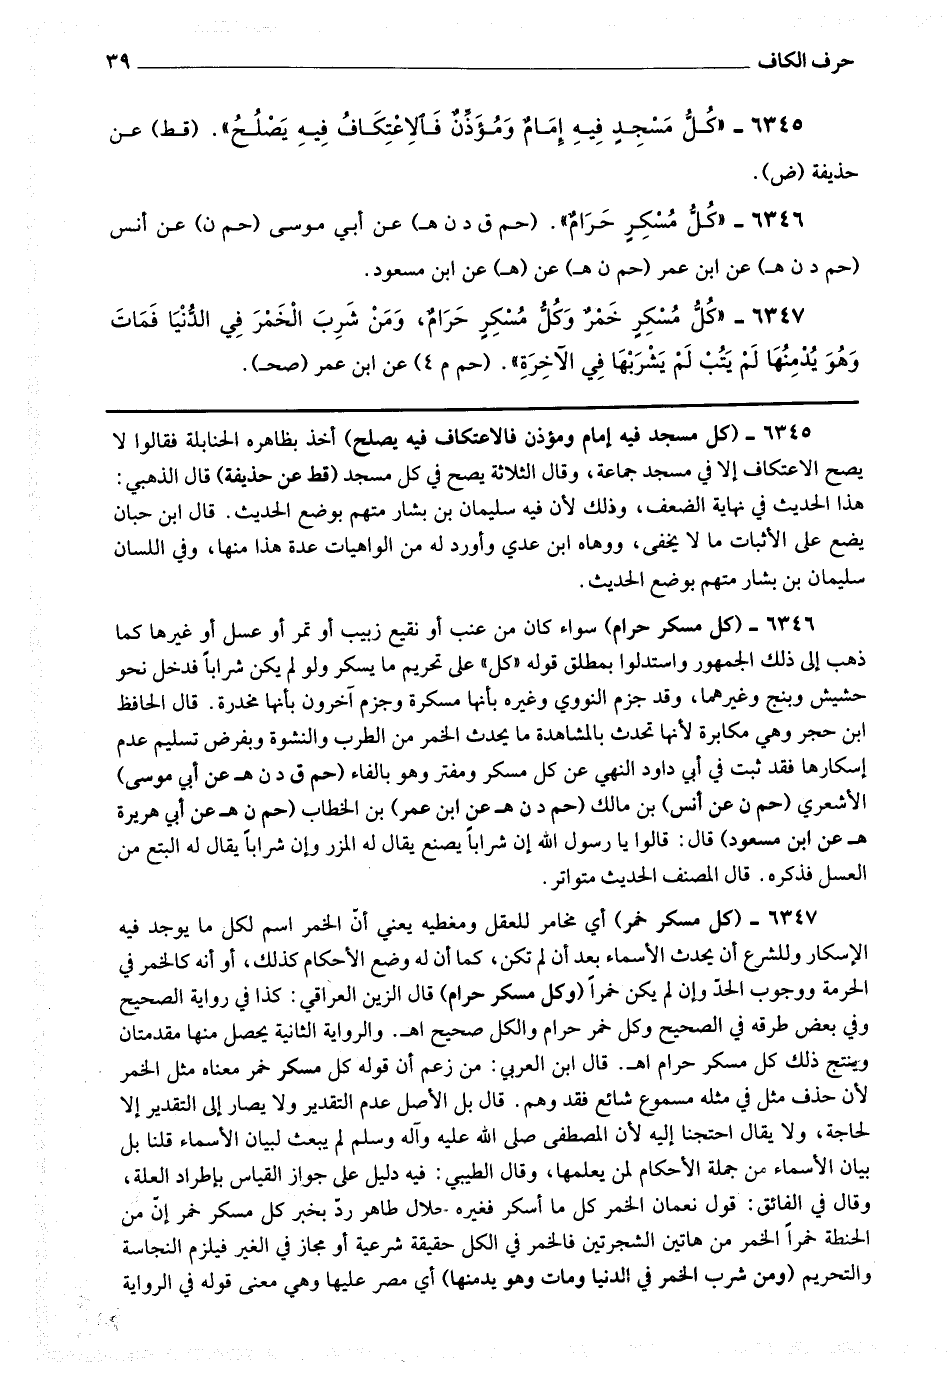 حرف الكاف ٣٩
٦٣٤٥ ـ «كُلُّ مَسْجِدٍ فِيهِ إِمَامٌ وَمُؤَذِّنٌ فَالِاعْتِكَافُ فِيهِ يَصْلُحُ». (قط) عن
حذيفة (ض).
٦٣٤٦ ـ «كُلُّ مُسْكِرٍ حَرَامٌ». (حم ق د ن هـ) عن أبي موسى (حم ن) عن أنس
(حم د ن هـ) عن ابن عمر (حم ن هـ) عن (هـ) عن ابن مسعود.
٦٣٤٧ ـ «كُلُّ مُسْكِرٍ خَمْرٌ وَكُلُّ مُسْكِرٍ حَرَامٌ، وَمَنْ شَرِبَ الْخَمْرَ فِي الدُّنْيَا فَمَاتَ
وَهُوَ يُدْمِنُهَا لَمْ يَتُبْ لَمْ يَشْرَبْهَا فِي الآخِرَةِ». (حم م ٤) عن ابن عمر (صحـ).
٦٣٤٥ ـ (كل مسجد فيه إمام ومؤذن فالاعتكاف فيه يصلح) أخذ بظاهره الحنابلة فقالوا لا
يصح الاعتكاف إلا في مسجد جماعة، وقال الثلاثة يصح في كل مسجد (قط عن حذيفة) قال الذهبي:
هذا الحديث في نهاية الضعف، وذلك لأن فيه سليمان بن بشار متهم بوضع الحديث. قال ابن حبان
يضع على الأثبات ما لا يخفى، ووهاه ابن عدي وأورد له من الواهيات عدة هذا منها، وفي اللسان
سليمان بن بشار متهم بوضع الحديث.
٦٣٤٦ ـ (كل مسكر حرام) سواء كان من عنب أو نقيع زبيب أو تمر أو عسل أو غيرها كما
ذهب إلى ذلك الجمهور واستدلوا بمطلق قوله «كل» على تحريم ما يسكر ولو لم يكن شراباً فدخل نحو
حشيش وبنج وغيرهما، وقد جزم النووي وغيره بأنها مسكرة وجزم آخرون بأنها مخدرة. قال الحافظ
ابن حجر وهي مكابرة لأنها تحدث بالمشاهدة ما يحدث الخمر من الطرب والنشوة وبفرض تسليم عدم
إسكارها فقد ثبت في أبي داود النهي عن كل مسكر ومفتر وهو بالفاء (حم ق د ن هـ عن أبي موسى)
الأشعري (حم ن عن أنس) بن مالك (حم د ن هـ عن ابن عمر) بن الخطاب (حم ن هـ عن أبي هريرة
هـ عن ابن مسعود) قال: قالوا يا رسول الله إن شراباً يصنع يقال له المزر وإن شراباً يقال له البتع من
العسل فذكره. قال المصنف الحديث متواتر.
٦٣٤٧ ـ (كل مسكر خمر) أي مخامر للعقل ومغطيه يعني أنّ الخمر اسم لكل ما يوجد فيه
الإسكار وللشرع أن يحدث الأسماء بعد أن لم تكن، كما أن له وضع الأحكام كذلك، أو أنه كالخمر في
الحرمة ووجوب الحدّ وإن لم يكن خمراً (وكل مسكر حرام) قال الزين العراقي: كذا في رواية الصحيح
وفي بعض طرقه في الصحيح وكل خمر حرام والكل صحيح اهـ. والرواية الثانية يحصل منها مقدمتان
وينتج ذلك كل مسكر حرام اهـ. قال ابن العربي: من زعم أن قوله كل مسكر خمر معناه مثل الخمر
لأن حذف مثل في مثله مسموع شائع فقد وهم. قال بل الأصل عدم التقدير ولا يصار إلى التقدير إلا
لحاجة، ولا يقال احتجنا إليه لأن المصطفى صلى الله عليه وآله وسلم لم يبعث لبيان الأسماء قلنا بل
بيان الأسماء من جملة الأحكام لمن يعلمها، وقال الطيبي: فيه دليل على جواز القياس بإطراد العلة،
وقال في الفائق: قول نعمان الخمر كل ما أسكر فغيره حلال طاهر ردّ بخبر كل مسكر خمر إنّ من
الحنطة خمراً الخمر من هاتين الشجرتين فالخمر في الكل حقيقة شرعية أو مجاز في الغير فيلزم النجاسة
والتحريم (ومن شرب الخمر في الدنيا ومات وهو يدمنها) أي مصر عليها وهي معنى قوله في الرواية